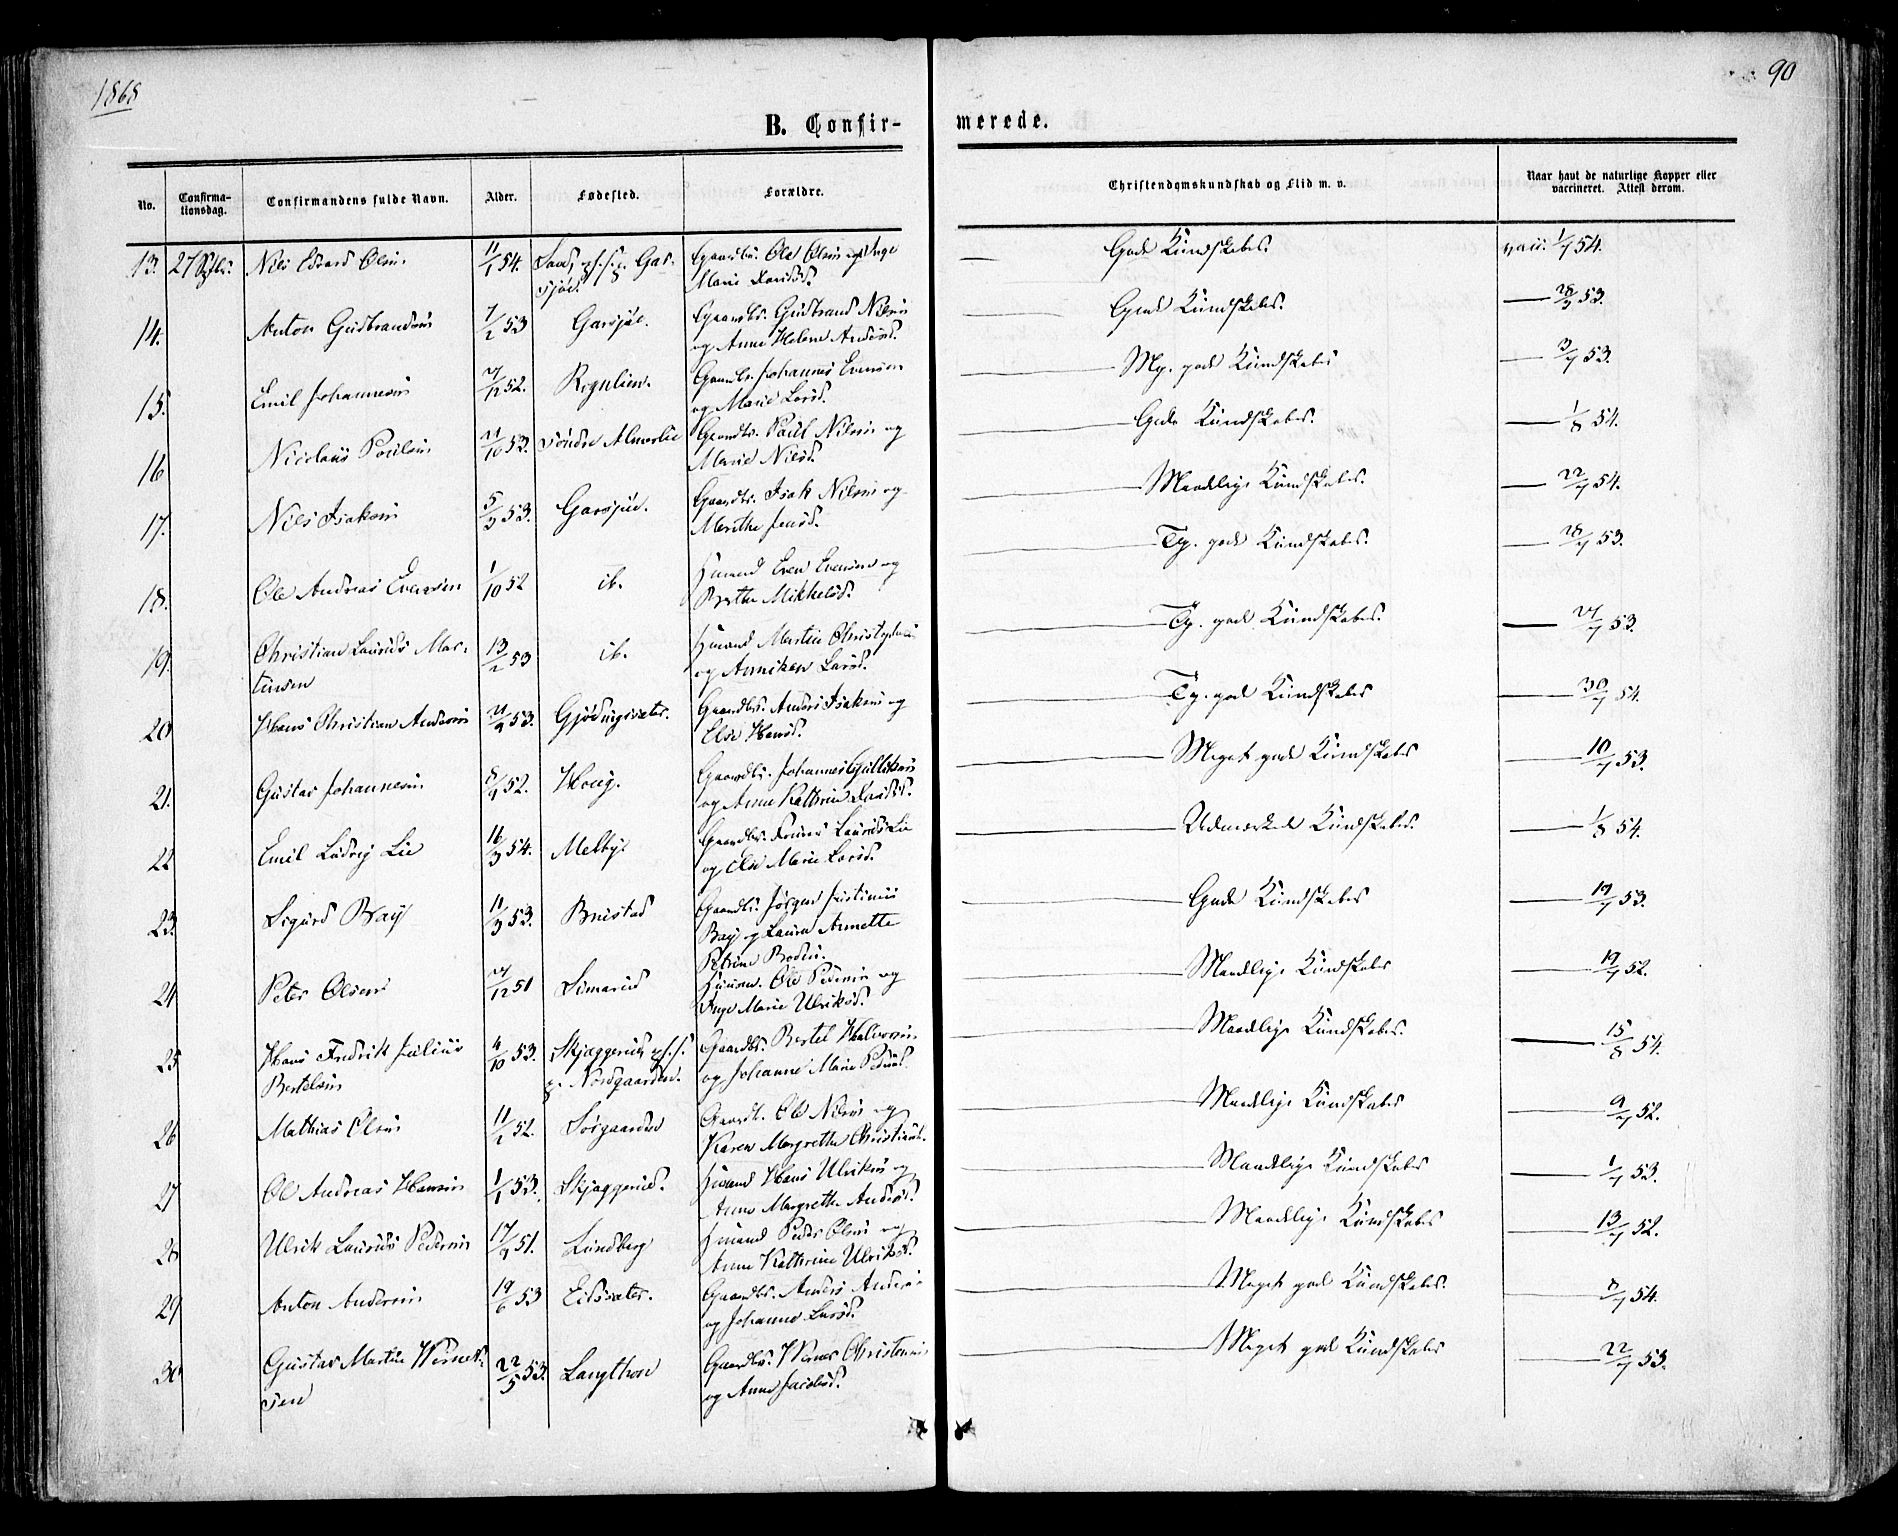 1868
90
B. Confir-
merede.
No.
Confirma-
tionsdag.
Confirmandens fulde Navn.
Alder.
Fødested.
Forældre.
Christendomskundskab og Flid m. v.
Naar havt de naturlige Kopper eller
vaccineret. Attest derom.
13. 27 Septbr. Nils Edvard Olsen 11/1 54. Gaardbr. Ole Olsen og Inge
Marie Davidsd. Gode Kundskaber. vacc. 1/7 54.
14. Anton Gudbrandsen 7/2 53 Garsjøe. Gaardbr. Gudbrand Nilsen
og Anne Helene Andersd. Gode Kundskaber. 53.
15. Emil Johannesen 52. Rognlien. Gaardbr. Johannes Evensen
og Marie Larsd. Mg. gode Kundskaber 3/7 53.
16 Nicolaus Poulsen 53. Søndre Almerlie Gaardbr. Paul Nilsen og
Marie Nilsd. Gode Kundskaber. 1/8 54.
17. Nils Isaksen 53. Garsjøe. Gaardbr. Isak Nilsen og
Marthe Jensd. Maadelige Kundskaber. 22/7 54.
18. Ole Andreas Evensen 1/10 52 ib. Huusmd Even Evensen og
Berthe Mikkelsd. Tg. gode Kundskaber. 28/7 53.
19. Christian Laurits Mar-
tinsen 13/2 53 ib. Huusmd Martin
og Anniken Larsd. Tg. gode Kundskaber. 53.
20 Hans Christian Andersen 53. Gjødingsæter. Gaardbr. Anders Isaksen og
Else Hansd. Tg. gode Kundskaber 30/7 54.
21. Gustav Johannesen 52. Houg. Gaardbr. Johannes Gulliksen
og Anne Kathrine Davidsd. Meget gode Kundskaber 10/7 53.
22 Emil Ludvig Lie 16/3 54. Melby. Gaardbr. Laurits Lie
og Else Marie Larsd. Udmærkede Kundskaber. 1/8 54.
23. Sigurd Bay 11/3 53. Bustad Gaardbr. Jørgen Justinus
Bay og Laura Annette
Petrine Bodin. Gode Kundskaber 19/7 53.
24 Peter Olsen 51 Limerud Ole Pedersen og
Inge Marie Ulriksd. Maadelige Kundskaber 19/7 52.
25 Hans Fredrik Julius
Bertelsen 4/10 53. Skjaggerud,
p. Nordgaarden. Gaardbr. Bertel Halvorsen
og Johanne Marie Pedersd. Maadelige Kundskaber. 15/8 54.
26 Mathias Olsen 52. Sørgaarden Gaardb. Ole Nilsen og
Karen Margrethe Christiansd. Maadelige Kundskaber 9/7 52.
27 Ole Andreas Hansen 1/1 53. Skjaggerud. Huusmd Hans Ulriksen og
Anne Margrethe Andersd. Maadelige Kundskaber 1/7 53.
28 Ulrik Laurits Pedersen 51. Lundberg Huusmd Peder Olsen og
Anne Kathrine Ulriksd. Maadelige Kundskaber 13/7 52.
29 Anton Andersen 19/6 53 Eidsæter. Gaardbr. Anders Andersen
og Johanne Larsd. Meget gode Kundskaber. 8/7 54.
30 Gustav Martin Werners-
sen 22/5 53. Langthon Gaardbr. Werner Christensen
og Anne Jacobsd. Meget gode Kundskaber 22/7 53.